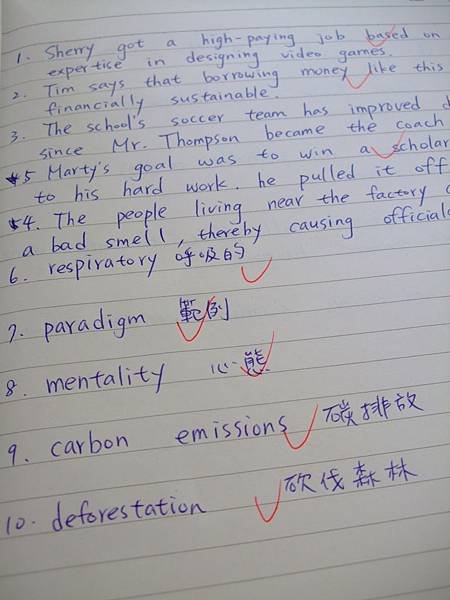 1. Sherry got a high-paying job based on
expertise in designing video games.
2. Tim says that borrowing money like this
financially sustainable.
3. The school's soccer team has improved
since Mr. Thompson became the coach
*5 Marty's goal was to win a scholar
to his hard work. he pulled it off
*4. The people living near the factory
a bad smell, thereby causing official
6. respiratory 呼吸的
7. paradigm 範例
8. mentality 心態
9. carbon emissions 碳排放
10. deforestation 砍伐森林